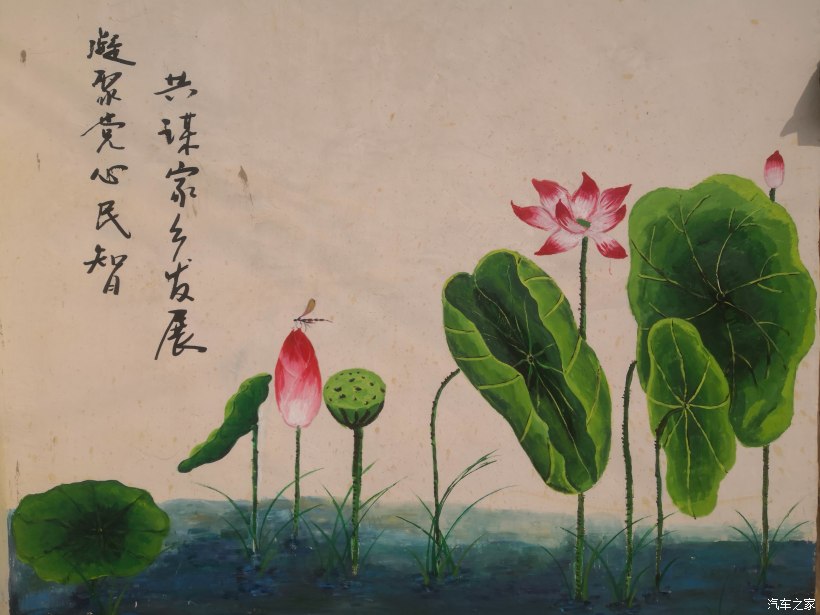 凝聚党心民智
共谋家乡发展
汽车之家